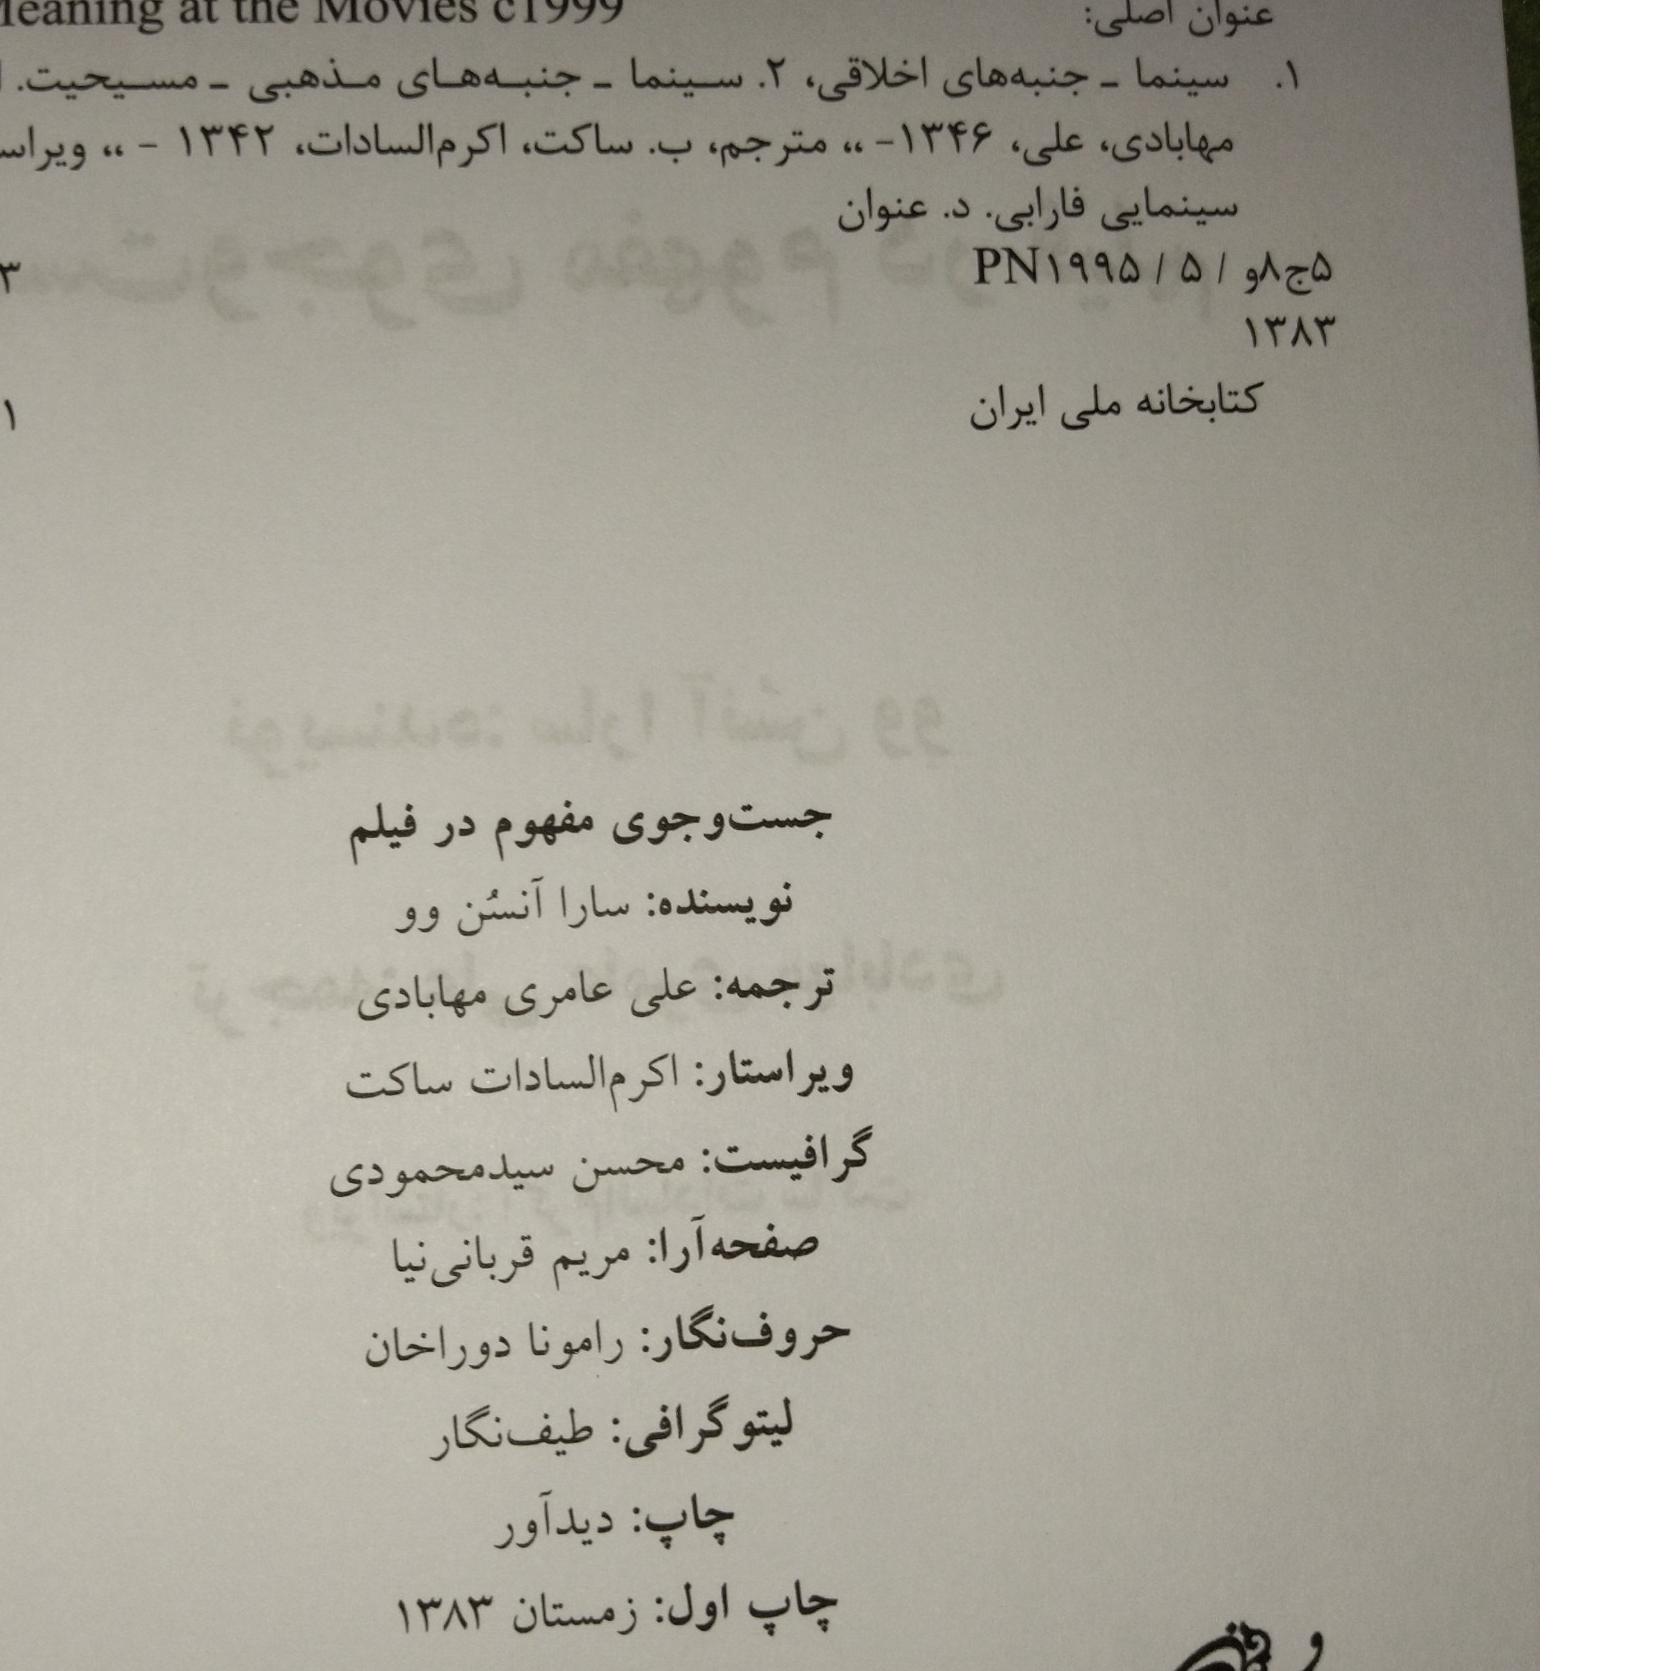 عنوان اصلی: Meaning at the Movies c1999
۱. سینما ـ جنبه‌های اخلاقی، ۲. سینما ـ جنبه‌های مذهبی ـ مسیحیت.
مهابادی، علی، ۱۳۴۶- ،، مترجم، ب. ساکت، اکرم‌السادات، ۱۳۴۲ - ،،
سینمایی فارابی. د. عنوان
PN۱۹۹۵ / ۵ / و۸ج۵ ۳
۱۳۸۳
کتابخانه ملی ایران ۱
جست‌وجوی مفهوم در فیلم
نویسنده: سارا آنسُن وو
ترجمه: علی عامری مهابادی
ویراستار: اکرم‌السادات ساکت
گرافیست: محسن سیدمحمودی
صفحه‌آرا: مریم قربانی‌نیا
حروف‌نگار: رامونا دوراخان
لیتوگرافی: طیف‌نگار
چاپ: دیدآور
چاپ اول: زمستان ۱۳۸۳